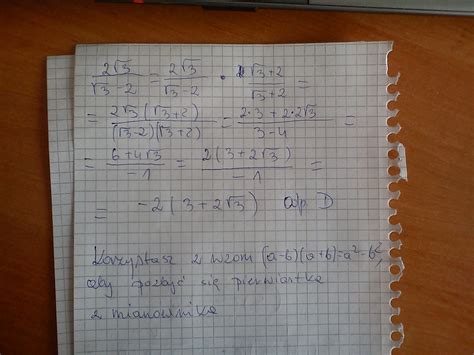 2√3/(√3-2) = 2√3/(√3-2) · (√3+2)/(√3+2) =
= 2√3(√3+2)/((√3-2)(√3+2)) = (2·3+2·2√3)/(3-4) =
= (6+4√3)/-1 = 2(3+2√3)/-1 =
= -2(3+2√3) odp D
Korzystasz z wzoru (a-b)(a+b)=a²-b²,
aby pozbyć się pierwiastka
z mianownika